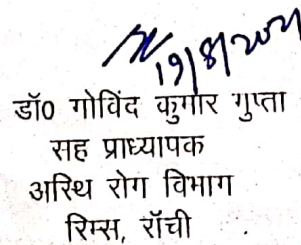 19/8/2021
डॉ0 गोविंद कुमार गुप्ता
सह प्राध्यापक
अस्थि रोग विभाग
रिम्स, रॉची